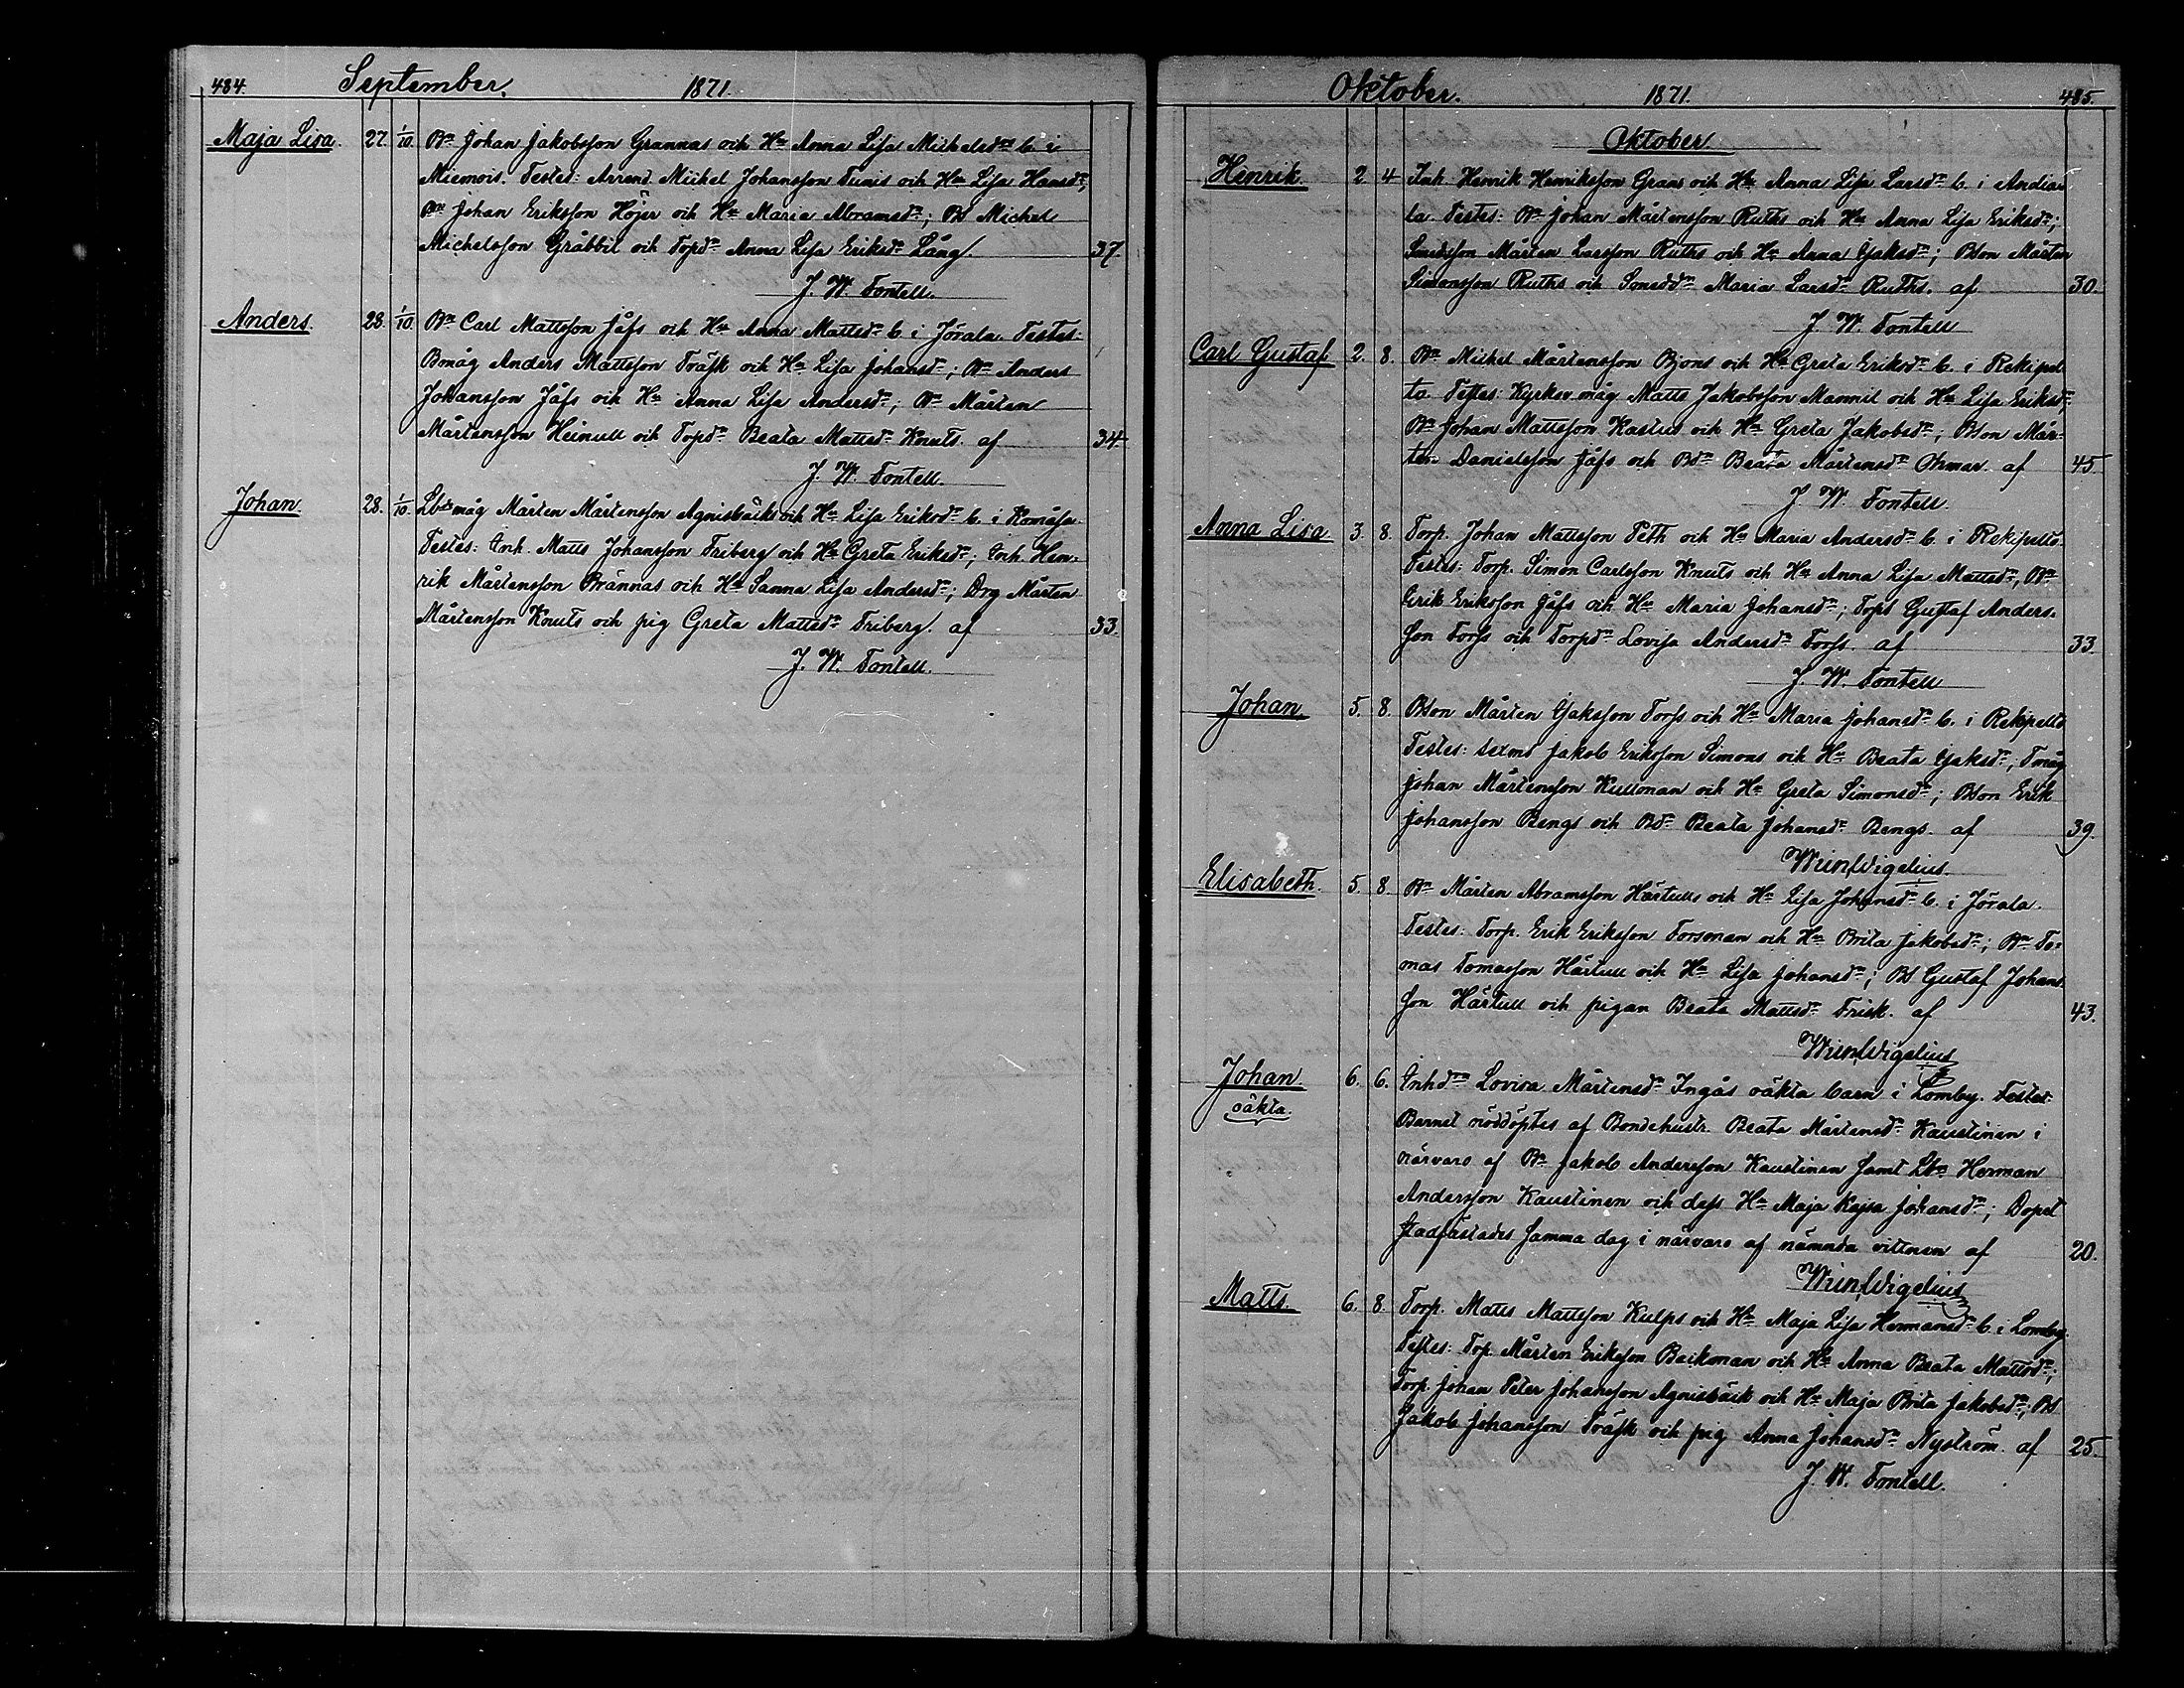 484. September. 1871.
Maja Lisa. 27. 1/10. Bn Johan Jakobsson Grannas och Hu Anna Lisa Michelsdr b. i
Miemois. Testes: Arrend. Mickel Johansson Tunis och Hu Lisa Hansdr;
Bn Johan Eriksson Höjer och Hu Maria Abramsdr; Bs Michel
Michelsson Gräbbil och Topdr Anna Lisa Eriksdr Lång. 37.
J. W. Fontell.
Anders. 28. 1/10. Bn Carl Mattsson Jåfs och Hu Anna Mattsdr b. i Jörala. Testes:
Bmåg Anders Mattsson Träsk och Hu Lisa Johansdr; Bn Anders
Johansson Jåfs och Hu Anna Lisa Andersdr; Bn Mårten
Mårtensson Heinull och Topdr Beata Mattsdr Knuts. af 34.
J. W. Fontell.
Johan. 28. 1/10. Lbdsmåg Mårten Mårtensson Agnisbäck och Hu Lisa Eriksdr b. i Komåsa.
Testes: Inh. Matts Johansson Friberg och Hu Greta Eriksdr; Inh. Hen-
rik Mårtensson Brännas och Hu Sanna Lisa Andersdr; Drg Mårten
Mårtensson Knuts och pig Greta Mattsdr Friberg. af 33.
J. W. Fontell.
Oktober. 1871. 485.
Oktober.
Henrik. 2 4 Inh. Henrik Henriksson Grans och Hu Anna Lisa Larsdr b. i Andia-
la. Testes: Bn Johan Mårtensson Ruths och Hu Anna Lisa Eriksdr;
Mårten Larsson Ruths och Hu Anna Isaksdr; Bson Mårten
Simonsson Ruths och Maria Larsdr Ruths. af 30.
J. W. Fontell
Carl Gustaf. 2. 8. Bn Mickel Mårtensson Bjons och Hu Greta Eriksdr b. i Rekipel-
to. Testes: Kyrkov. måg Matts Jakobsson Mannil och Hu Lisa Eriksdr;
Bn Johan Mattsson Kastus och Hu Greta Jakobsdr; Bson Mår-
ten Danielsson Jåfs och Bdr Beata Mårtensdr af 45
J. W. Fontell.
Anna Lisa 3. 8. Torp. Johan Mattsson Peth och Hu Maria Andersdr b. i Rekipelto.
Testes: Torp. Simon Carlsson Knuts och Hu Anna Lisa Mattsdr; Bn
Erik Eriksson Jåfs och Hu Maria Johansdr; Tops Gustaf Anders-
son Torss och Torpdr Lovisa Andersdr Torss. af 33.
J. W. Fontell
Johan 5. 8. Bson Mårten Isaksson Torss och Hu Maria Johansdr b. i Rekipelto
Testes: Sexms Jakob Eriksson Simons och Hu Beata Isaksdr; Tmåg
Johan Mårtensson Kullonan och Hu Greta Simonsdr; Bson Erik
Johansson Bengs och Bdr Beata Johansdr Bengs. af 39.
Wigelius.
Elisabeth. 5. 8. Bn Mårten Abramsson Härtull och Hu Lisa Johansdr b. i Jörala.
Testes: Torp. Erik Eriksson Forsman och Hu Brita Jakobsdr; Bn To-
mas Tomasson Härtull och Hu Lisa Johansdr; Bs Gustaf Johans-
son Härtull och pigan Beata Mattsdr Frisk. af 43.
Wigelius
Johan 6. 6. Inhdr Lovisa Mårtensdr Ingås oäkta barn i Lomby. Testes:
oäkta. Barnet nöddöptes af Bondehustr. Beata Mårtensdr Kaustinen i
närvaro af Bn Jakob Andersson Kaustinen samt Lbn Herman
Andersson Kaustinen och dess Hu Maja Kajsa Johansdr; Dopet
stadfästades samma dag i närvaro af nämnda vittnen af 20.
Wigelius
Matts. 6. 8 Torp. Matts Mattsson Kulps och Hu Maja Lisa Hermansdr b. i Lomby.
Testes: Top. Mårten Eriksson Backman och Hu Anna Beata Mattsdr;
Torp. Johan Peter Johansson Agnisbäck och Hu Maja Brita Jakobsdr; Bs
Jakob Johansson Träsk och pig Anna Johansdr Nyström. af 25.
J. W. Fontell.